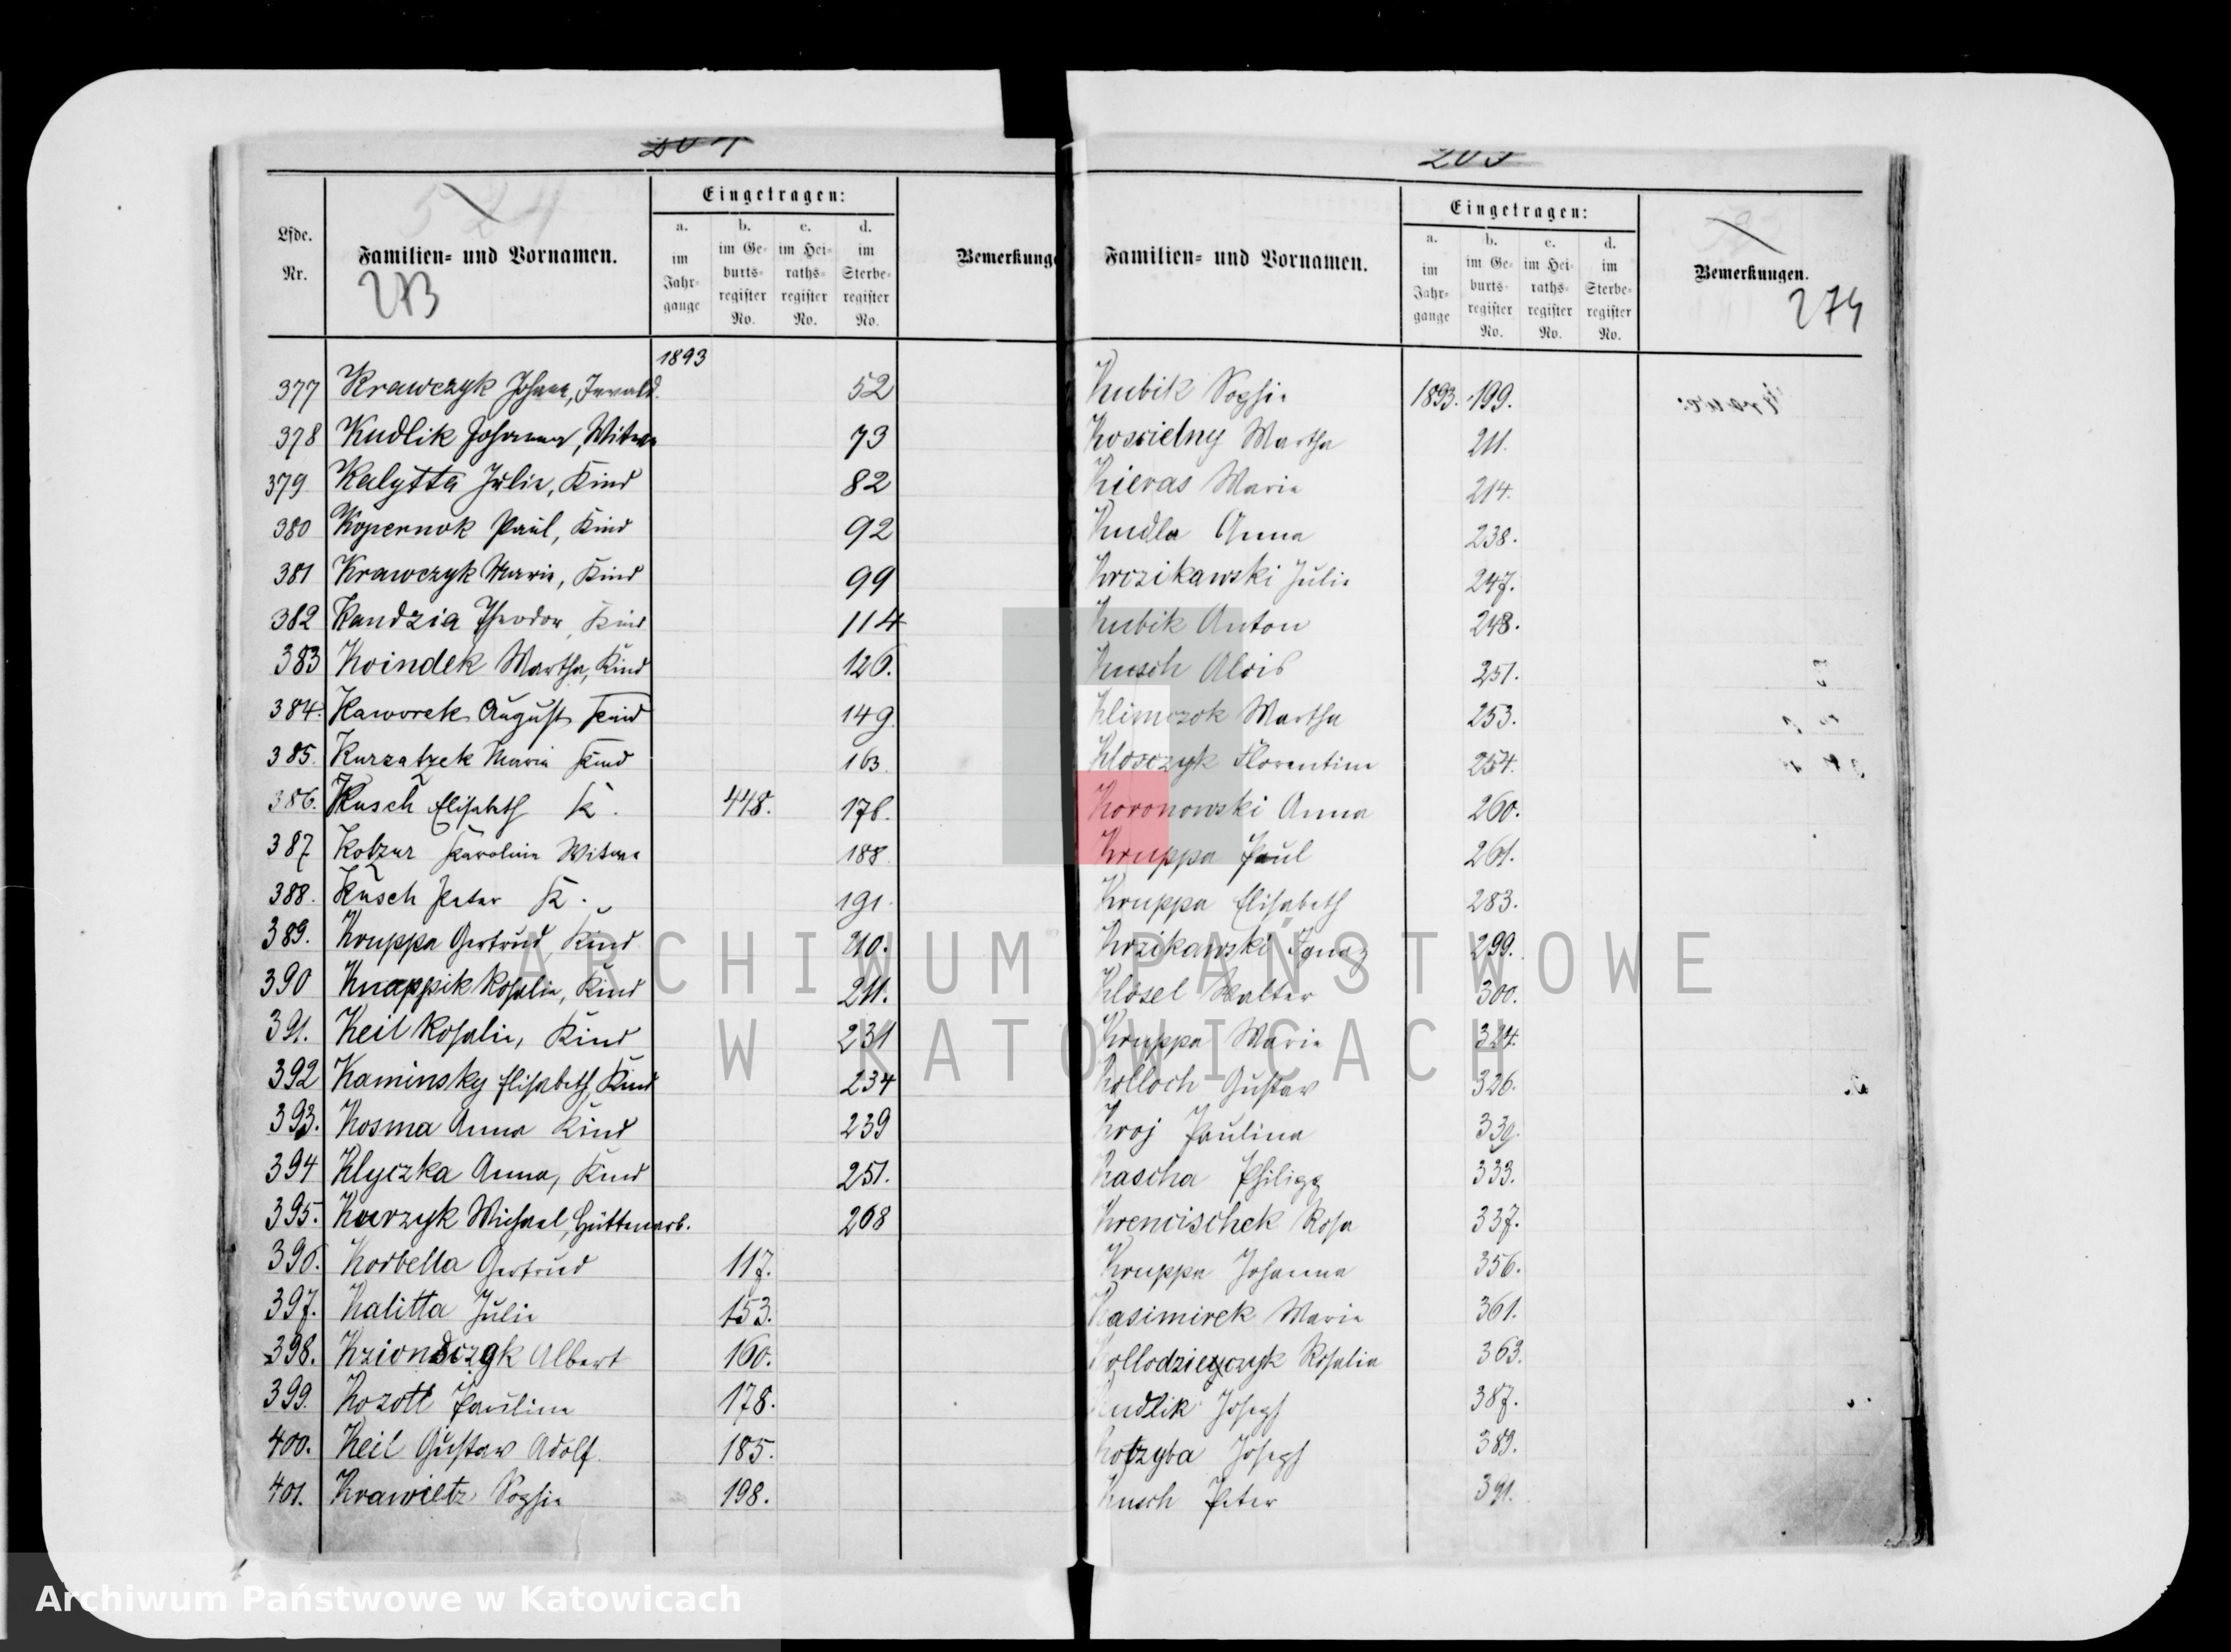 Eingetragen:
Lfde. Nr.
Familien- und Vornamen.
a. im Jahrgange
b. im Geburtsregister No.
c. im Heirathsregister No.
d. im Sterberegister No.
Bemerkunge
273
1893
377 Krawczyk Johann, Invalid. 52
378 Kudlik Johanna, Witwe 73
379 Kalytta Julie, Kind 82
380 Kopernok Paul, Kind 92
381 Krawczyk Marie, Kind 99
382 Kandzia Theodor, Kind 114
383 Koindek Martha, Kind 126.
384. Kaworek August Kind 149.
385. Kurzatzek Marie Kind 163.
386. Kusch Elisabeth K. 448. 178.
387 Kotzur Karoline Witwe 188.
388. Kusch Peter K. 191.
389. Kruppa Gertrud, Kind 210.
390 Knappik Rosalie, Kind 211.
391. Keil Rosalie, Kind 231
392 Kaminsky Elisabeth, Kind 234
393. Kosma Anna Kind 239
394 Klyczka Anna, Kind 251.
395. Kurzyk Michael, Hüttenarb. 268
396. Korbella Gertrud 117.
397. Kalitta Julie 153.
398. Kziondczyk Albert 160.
399. Kozott Pauline 178.
400. Keil Gustav Adolf. 185.
401. Krawietz Sophie 198.
Familien- und Vornamen.
Eingetragen:
a. im Jahrgange
b. im Geburtsregister No.
c. im Heirathsregister No.
d. im Sterberegister No.
Bemerkungen.
274
Kubik Sophie 1893. 199.
Koscielny Martha 211.
Kieras Marie 214.
Kudla Anna 238.
Krczikawski Julie 247.
Kubik Anton 248.
Kusch Alois 251.
Klimczok Martha 253.
Klosczyk Florentine 254.
Koronowski Anna 260.
Kruppa Paul 261.
Kruppa Elisabeth 283.
Krzikawski Ignaz 299.
Klösel Walter 300.
Kruppa Marie 324.
Kolloch Gustav 326.
Kroj Paulina 330.
Kascha Philipp 333.
Krencischek Rosa 337.
Kruppa Johanna 356.
Kasimirek Marie 361.
Kollodzieyczyk Rosalie 363.
Kudlik Joseph 387.
Kotzyba Joseph 389.
Kusch Peter 391.
ARCHIWUM PAŃSTWOWE
W KATOWICACH
Archiwum Państwowe w Katowicach